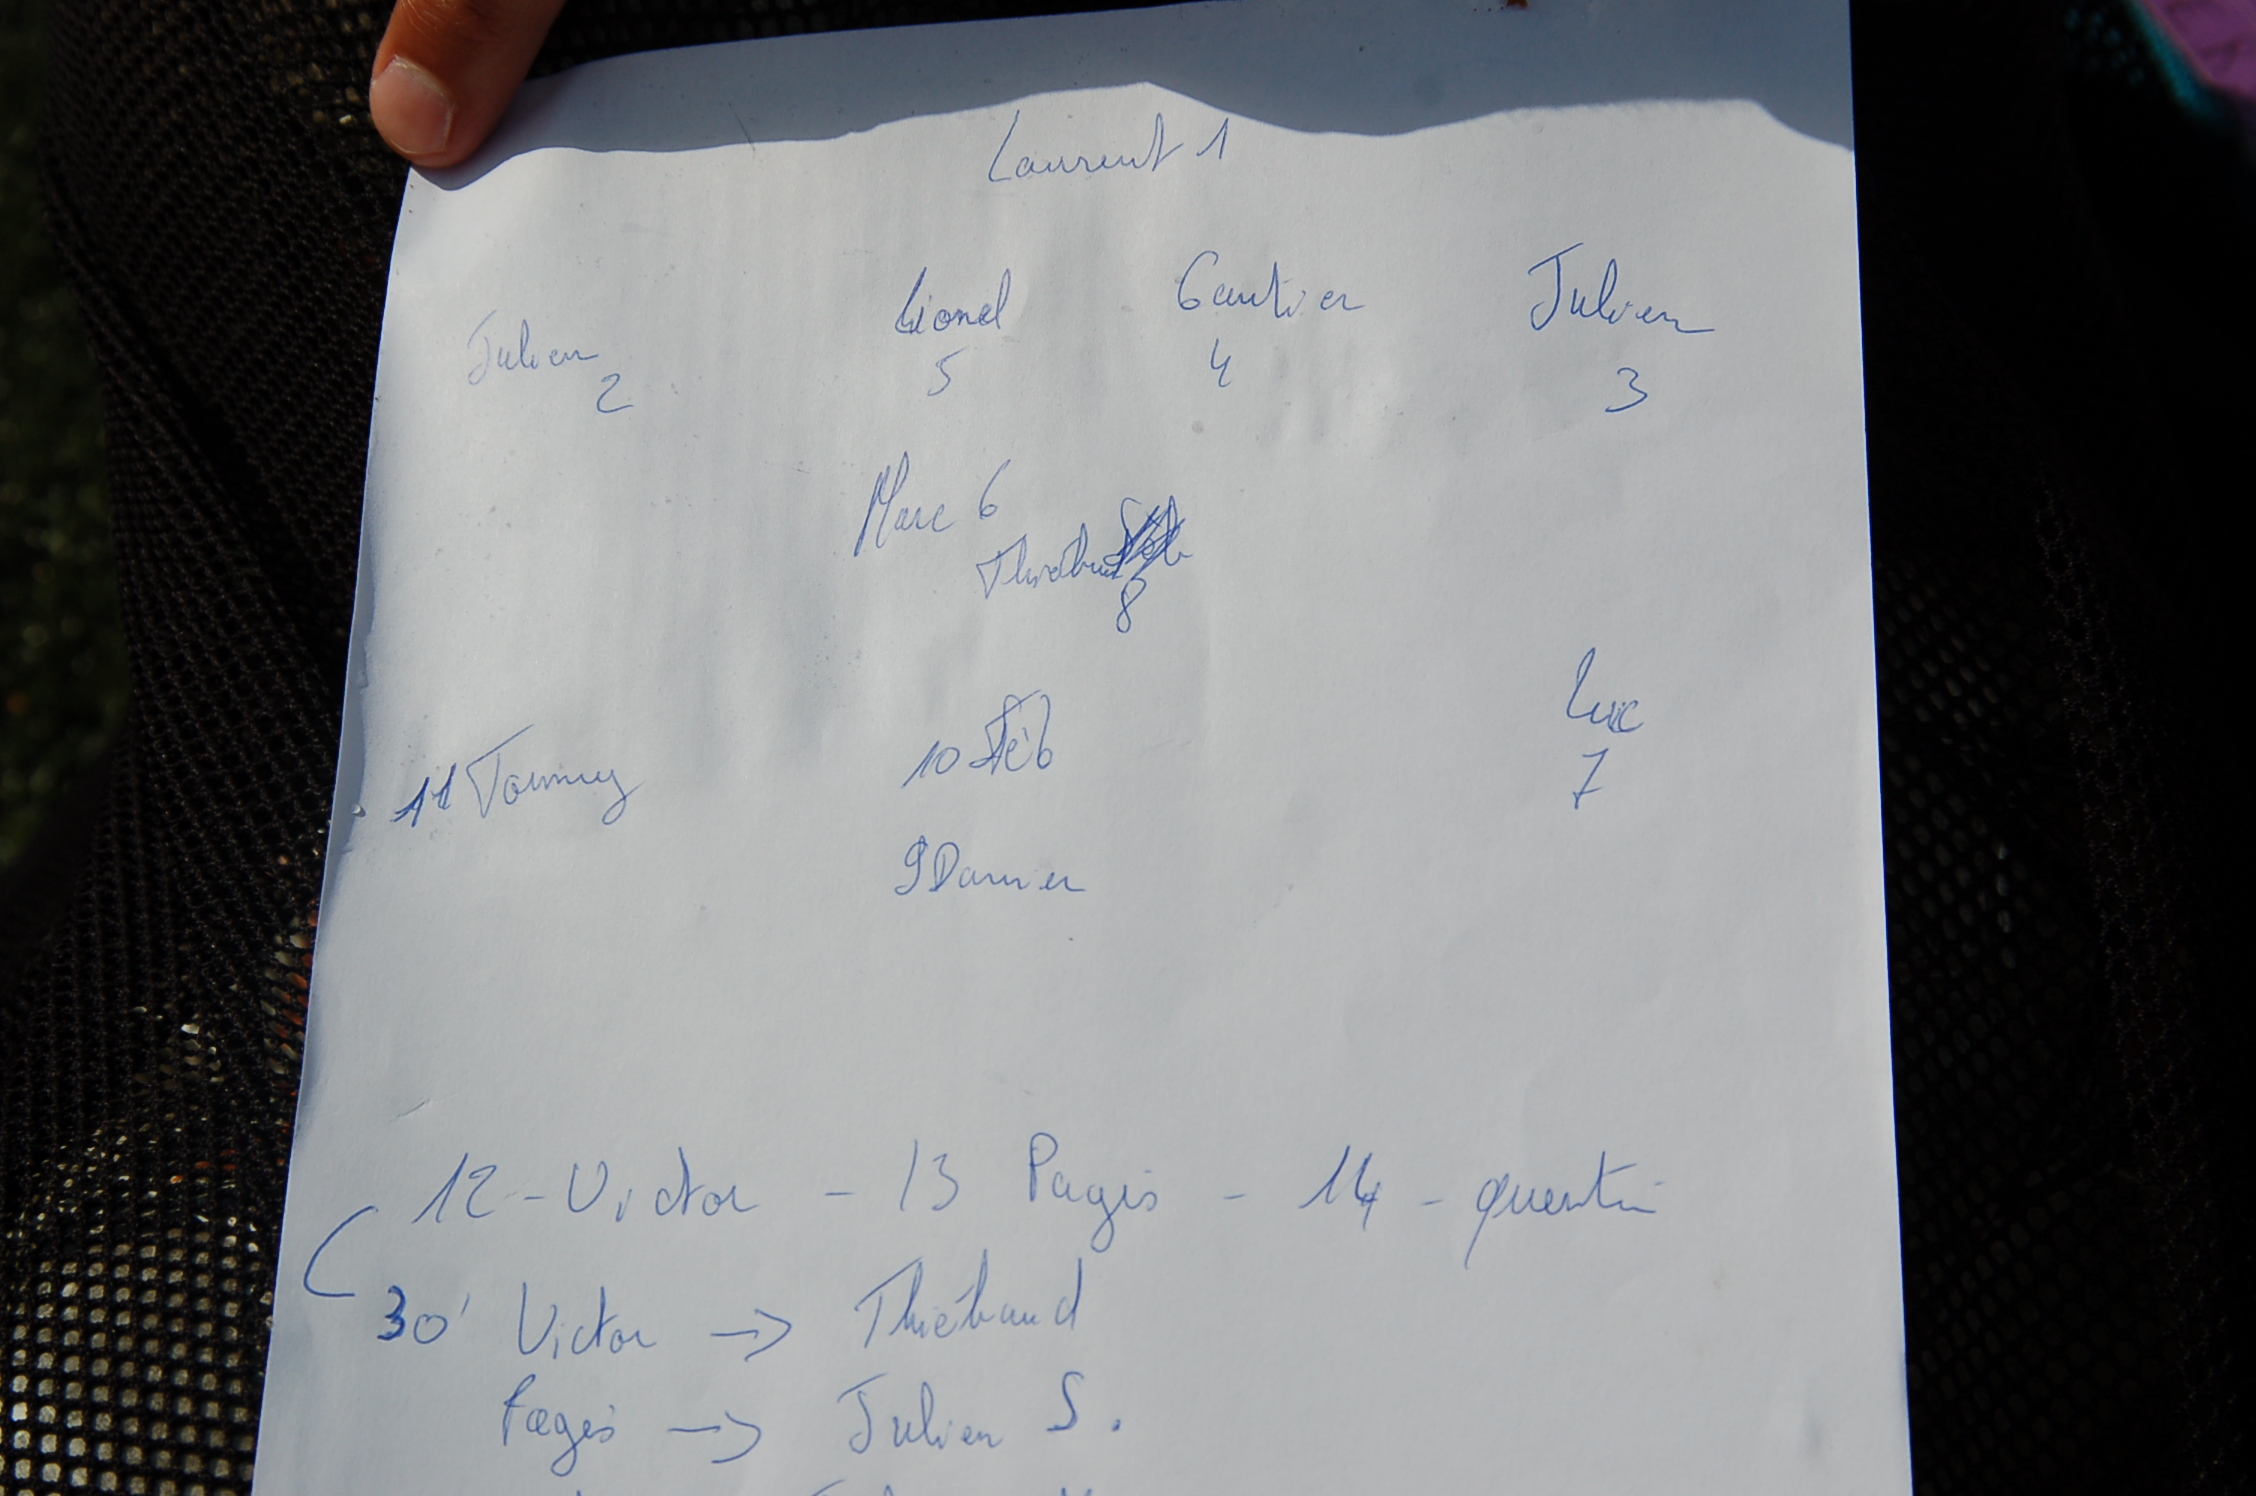 Laurent 1
Julien Lionel Gautier Julien
2 5 4 3
Marc 6
Thiébaud
8
Luc
11 Tommy 10 Séb 7
9 Damien
12 - Victor - 13 Pagès - 14 - quentin
30' Victor → Thiébaud
Pagès → Julien S.